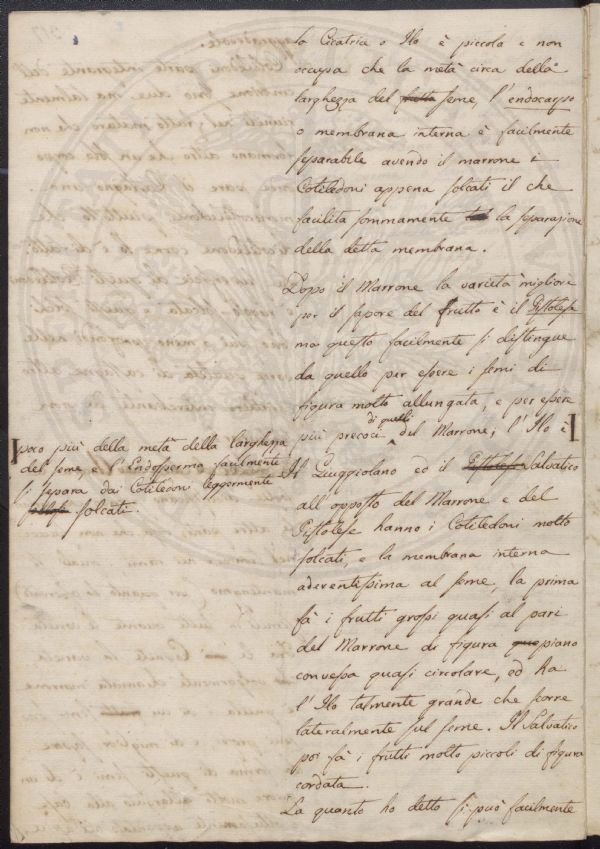 la Cicatrice o Ilo è piccola e non
occupa che la metà circa della
larghezza del frutto seme, l'endocarpo
o membrana interna è facilmente
separabile avendo il marrone i
Cotiledoni appena solcati il che
facilita sommamente la separazione
della detta membrana.
Dopo il Marrone la varietà migliore
per il sapore del frutto è il Pistolese
ma questo facilmente si distingue
da quello per essere i semi di
figura molto allungata, e per essere
più precoci di quelli del Marrone, l'Ilo è
poco più della metà della larghezza
del seme, e l'Endosperma facilmente
si separa dai Cotiledoni leggermente
solcati.
Il Giuggiolano ed il Pistolese Salvatico
all'opposto del Marrone e del
Pistolese hanno i Cotiledoni molto
solcati, e la membrana interna
aderentissima al seme, la prima
fà i frutti grossi quasi al pari
del Marrone di figura piano
convessa quasi circolare, ed ha
l'Ilo talmente grande che scorre
lateralmente sul seme. Il Salvatico
poi fà i frutti molto piccoli di figura
cordata.
Da quanto ho detto si può facilmente